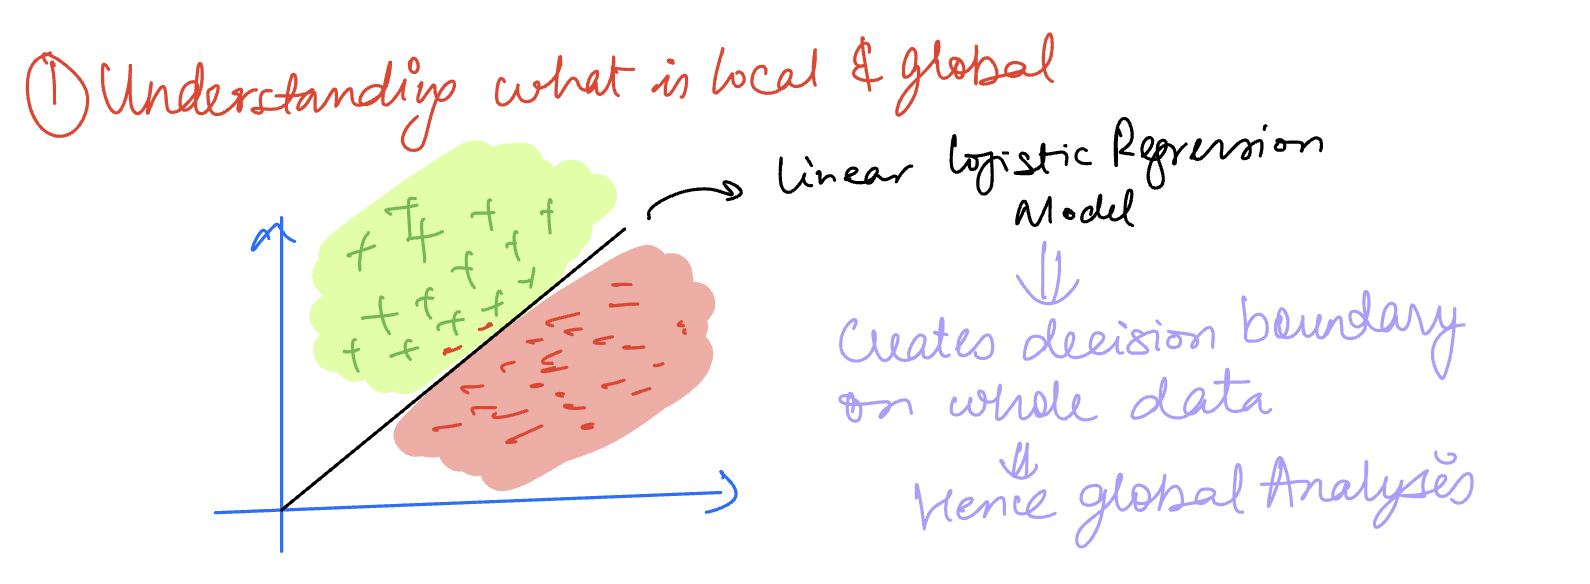 ① Understanding what is local & global
Linear Logistic Regression
Model
Creates decision boundary
on whole data
Hence global Analysis